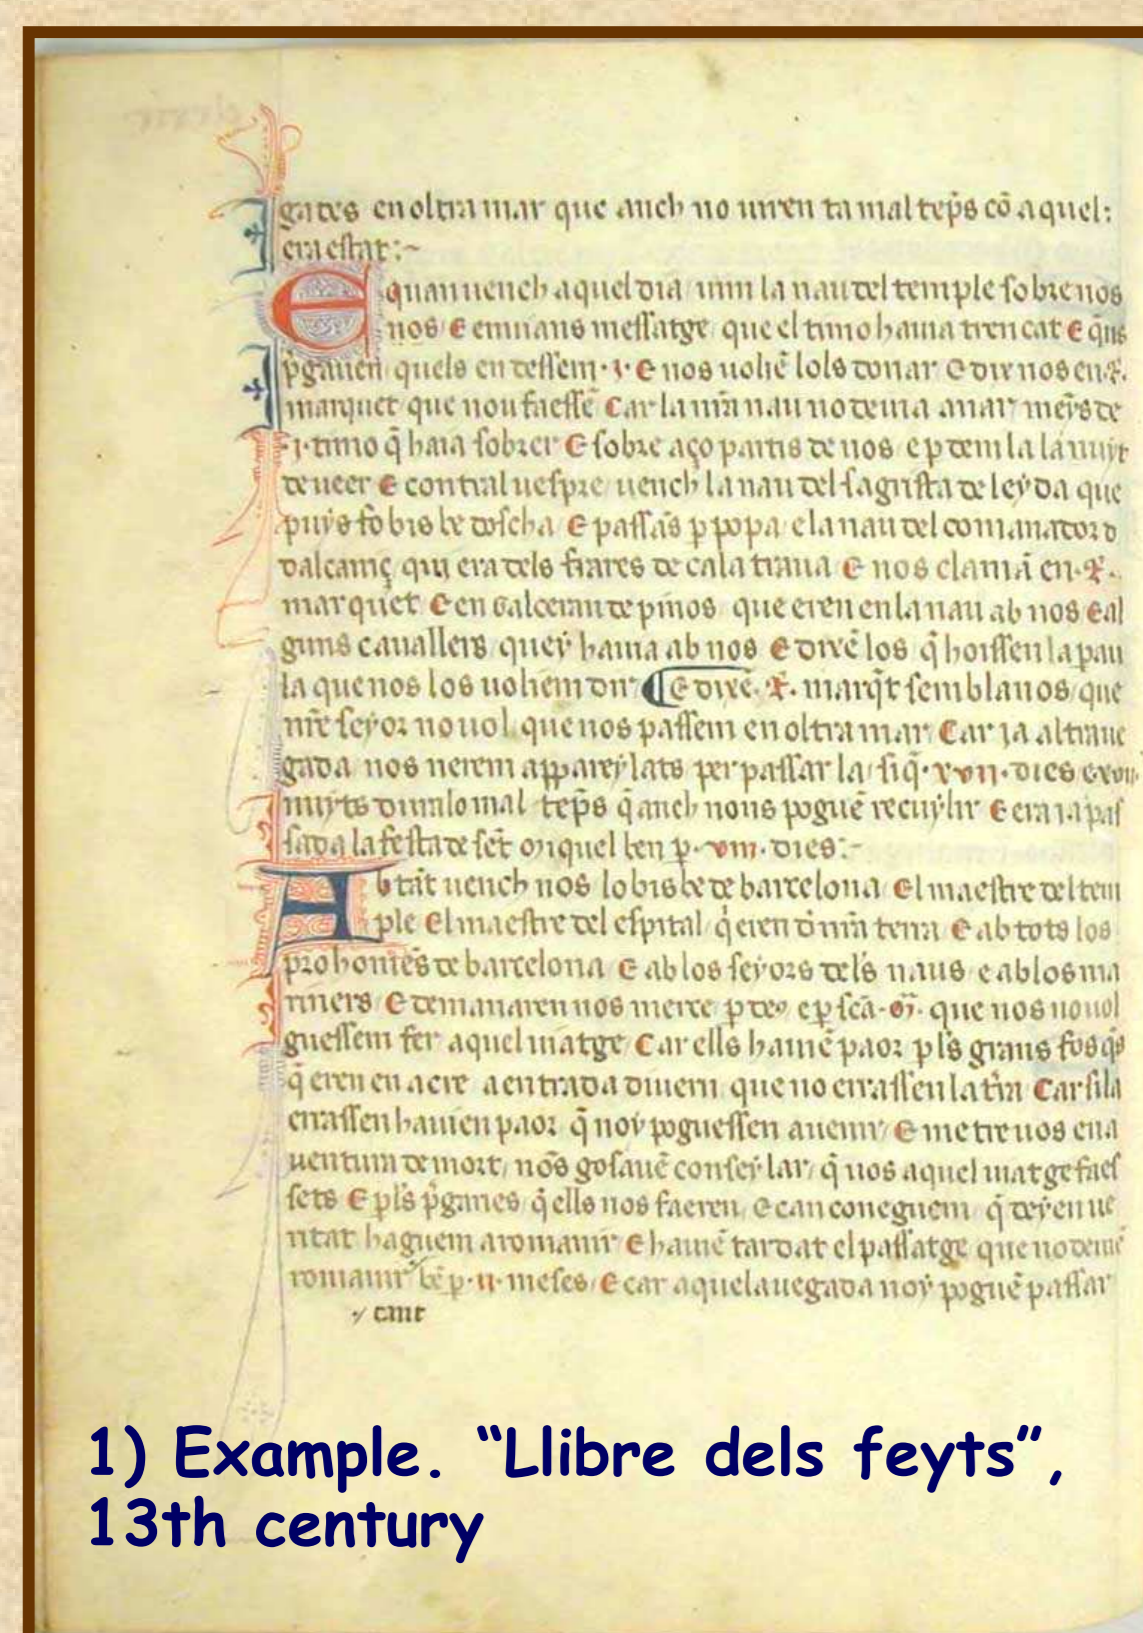 gades en oltra mar que anch no viren ta mal tẽps cõ aquel:
era estat:~
E quan uench aquel dia uim la nau del temple sobre nos
nos E emuians messatge que el timo hauia trencat E q̃ns
p̃gauen quels en dessem · j · E nos uoliẽ lols donar E dix nos en · R̃ ·
marquet que nou faessẽ Car la nr̃a nau no deuia anar meýs de
· j · timo q̃ haia sobrer E sobre aço partis de nos e pdem la la nuyt
de ueer E contral uespre uench la nau del sagrista de leyda que
puys fo bisbe doscha E passas p popa e la nau del comanador d
dalcaniç qui era dels frares de calatraua E nos clamã en · R̃ ·
marquet E en Galceran de pinos que eren en la nau ab nos E al
guns cauallers quey hauia ab nos E dixẽ los q̃ hoissen la pau
la que nos los uoliem dir ¶ E dixẽ · R̃ · marq̃t semblauos que
nr̃e seyor no uol que nos passem en oltra mar Car ja altra ue
gada nos nerem appareylats per passar la, fiq̃ · xvii · dies e xvii
nuyts dura lo mal tẽps q̃ anch nons poguẽ recuylir E era ja pas
sada la festa de set
A btãt uench nos lo bisbe de barcelona El maestre del tem
ple El maestre del espital q̃ eren d nr̃a terra E ab tots los
prohomẽs de barcelona E ab los seyors dels naus e ab los ma
riners E demanaren nos merce p deu e p scã · m̃ · que nos no uol
guessem fer aquel uiatge Car ells hauiẽ paor pls grans
q̃ eren en acre a entrada diuern que no errassen la tr̃ra Car si la
errassen hauien paor q̃ noy poguessen auenir E metre uos en a
uentura de mort, nõs gosauẽ conseylar, q̃ uos aquel uiatge faes
sets E pls p̃garies q̃ ells nos faeren, E can coneguem q̃ deyen ue
ritat haguem a romanir E hauiẽ tardat el passatge que no deuiẽ
romanir bẽ p · ii · meses E car aquela uegada noy poguẽ passar
1) Example. “Llibre dels feyts”,
13th century